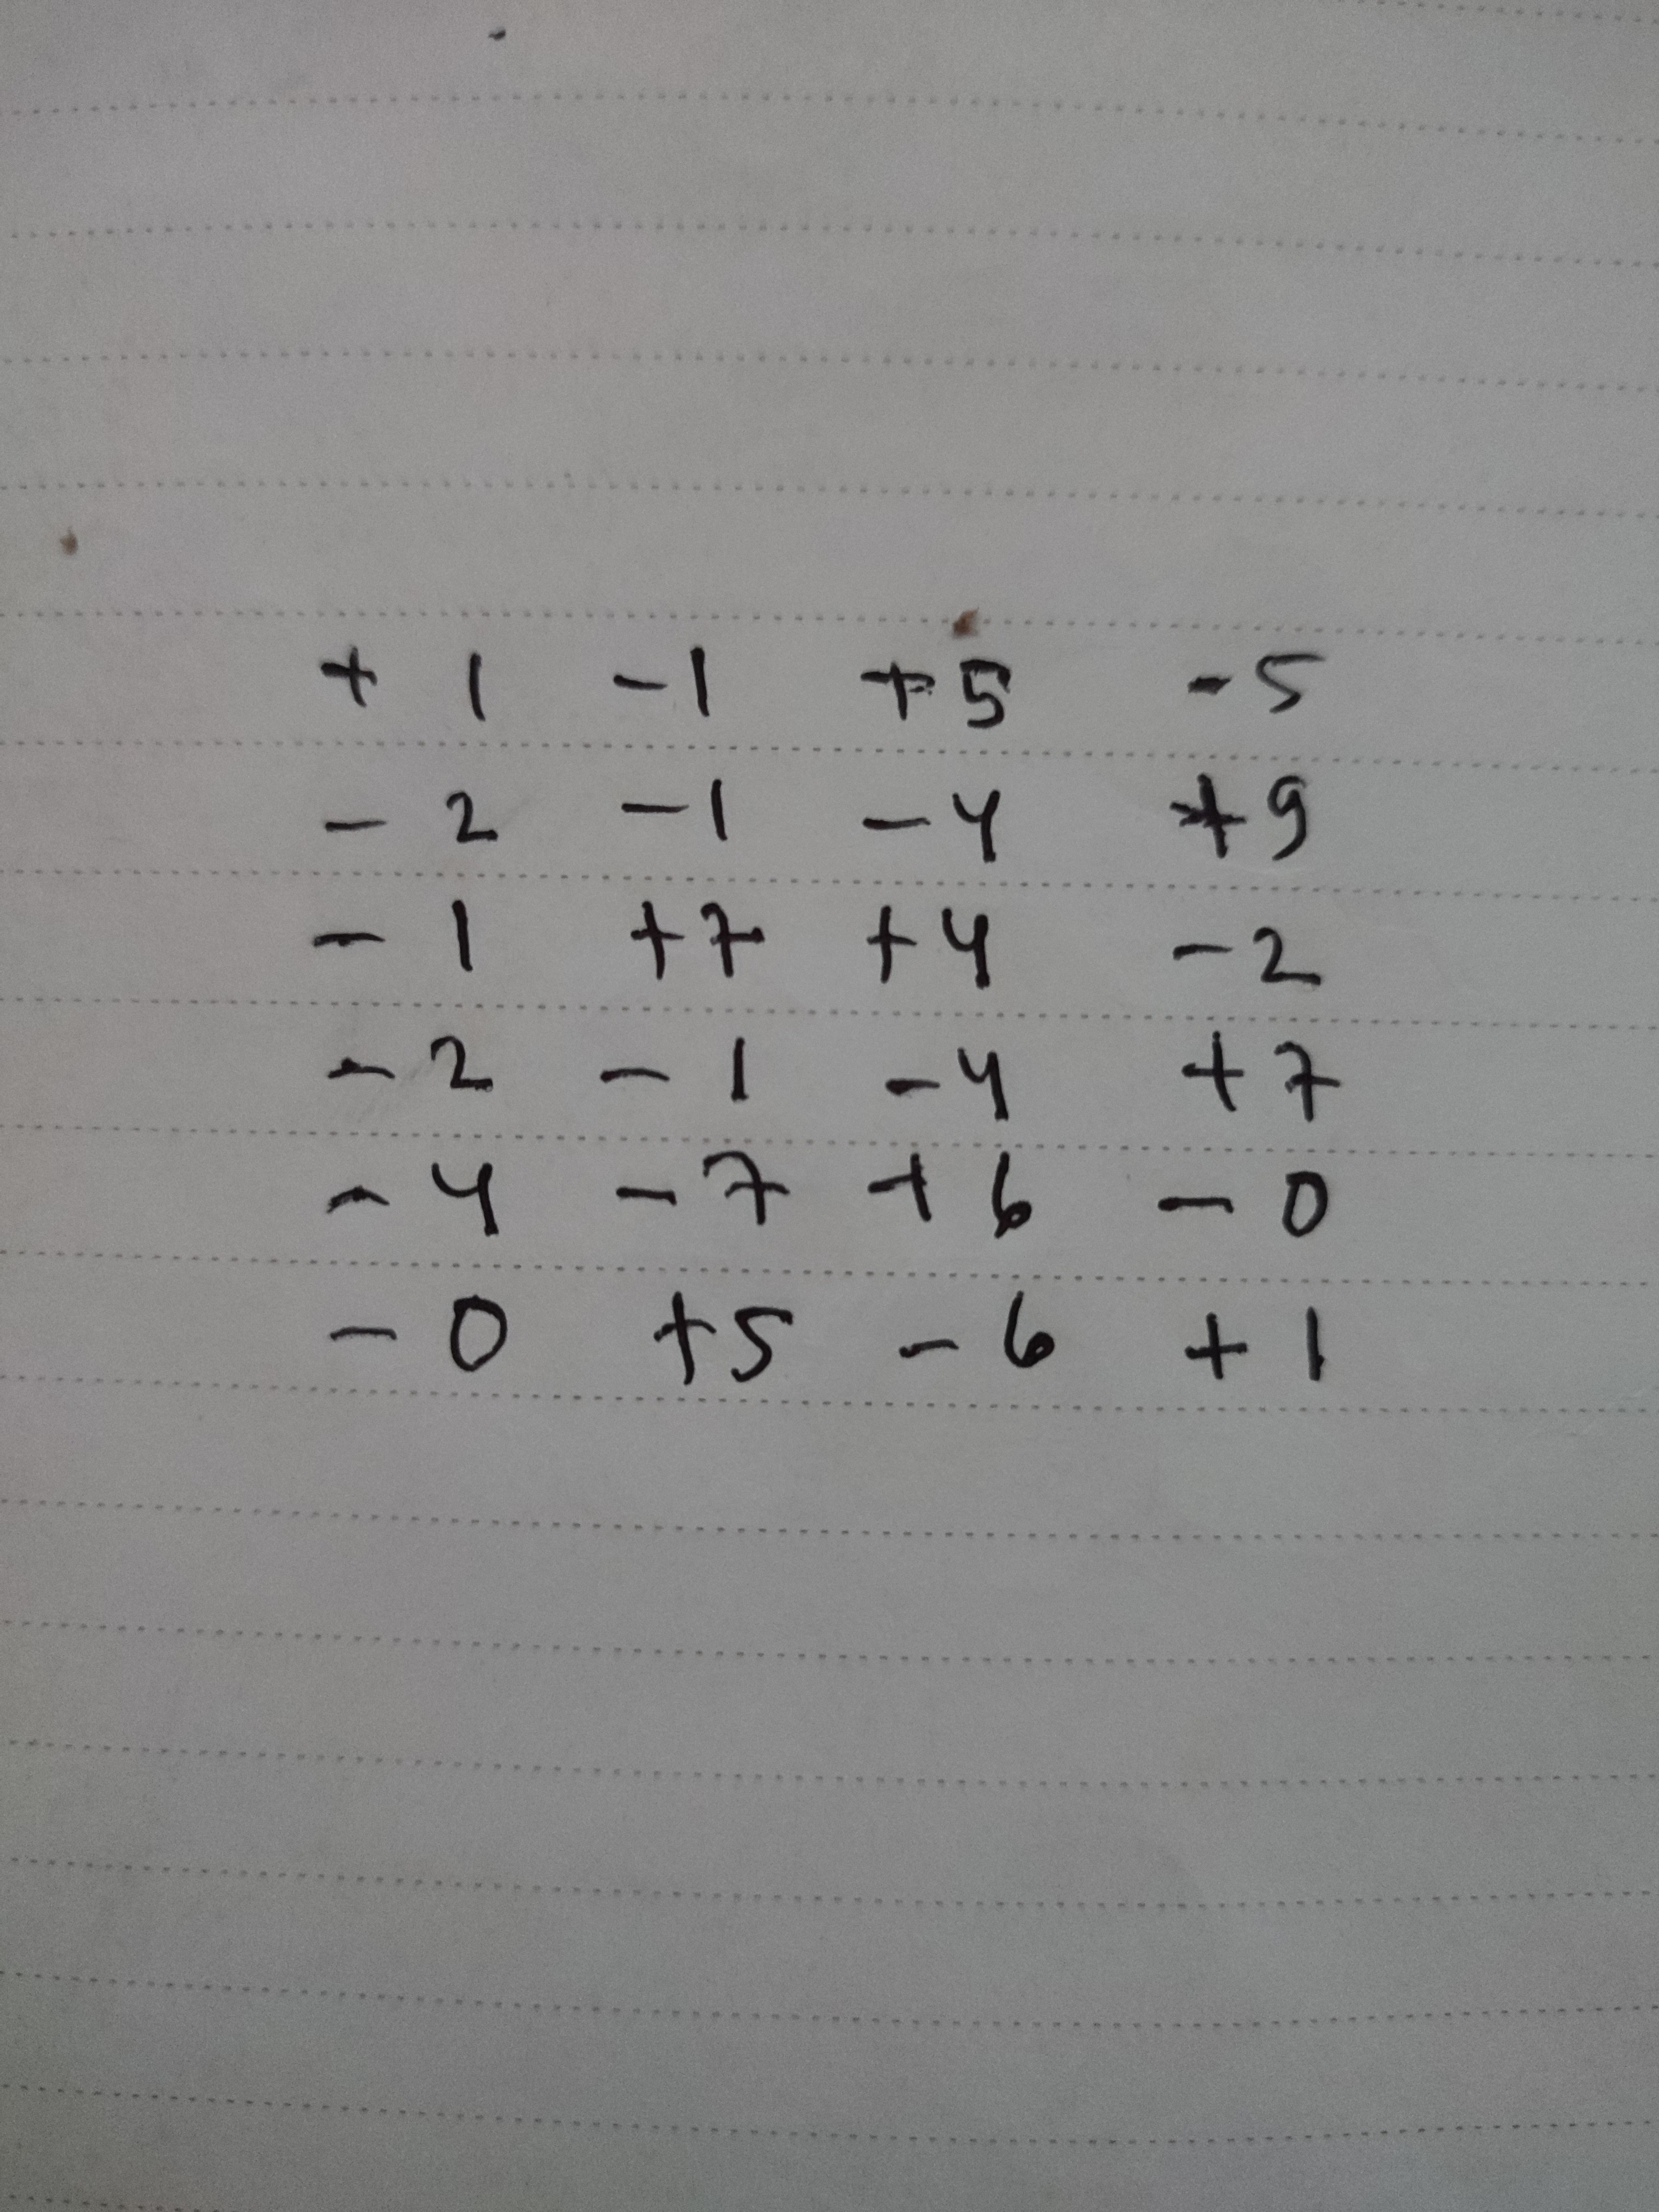 + 1 -1 +5 -5
- 2 -1 -4 +9
- 1 +7 +4 -2
- 2 - 1 -4 +7
- 4 -7 +6 - 0
- 0 +5 - 6 + 1